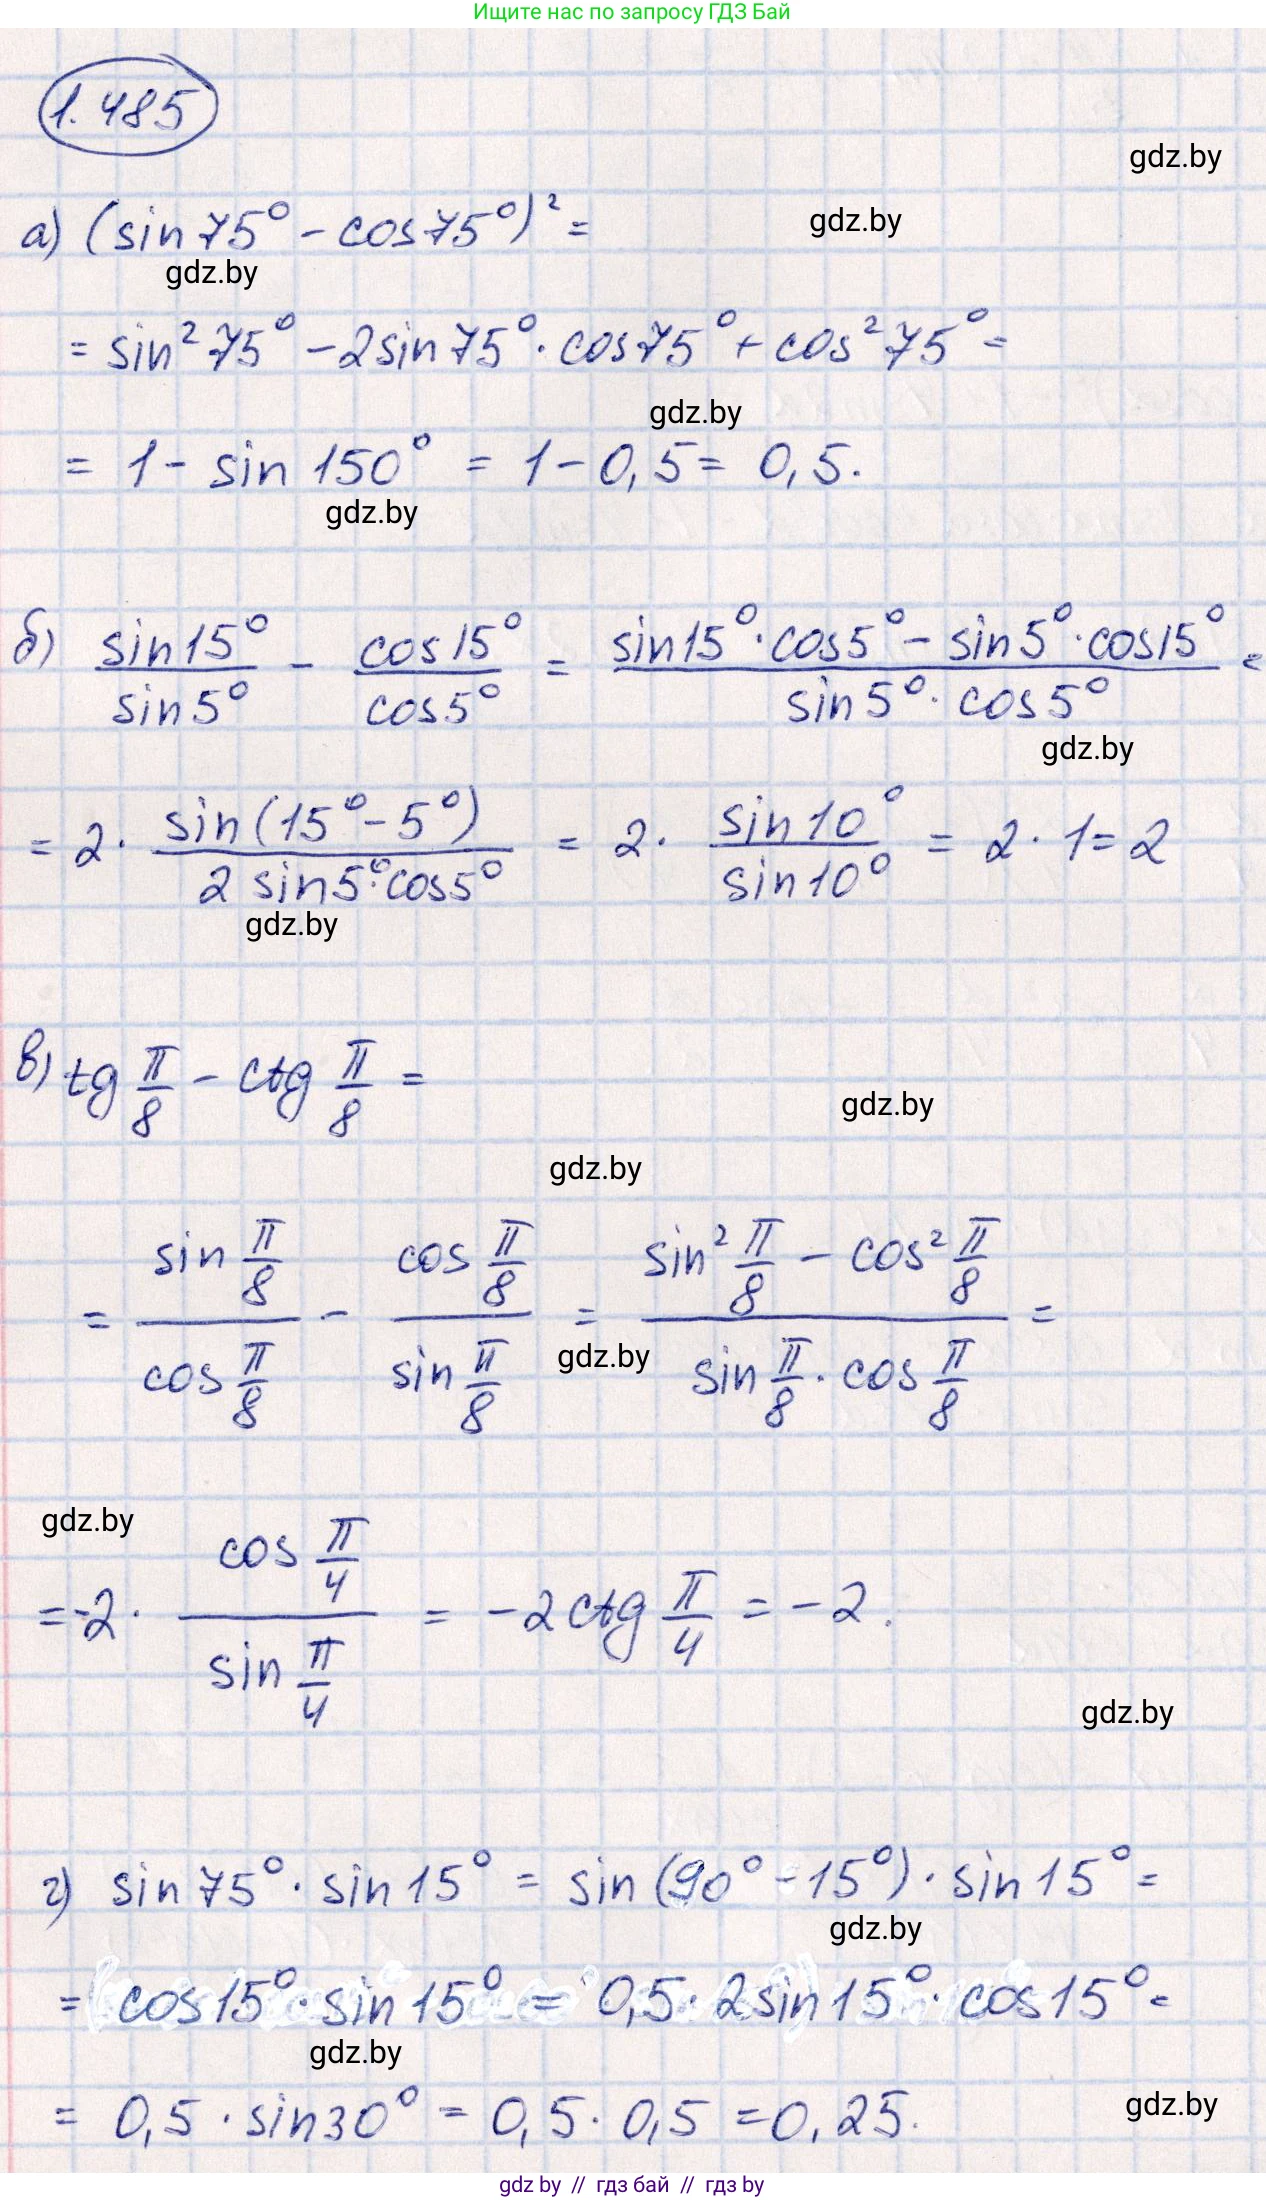 Ищите нас по запросу ГДЗ Бай
1.485
gdz.by
а) (sin75° - cos75°)² =
gdz.by
gdz.by
= sin²75° - 2sin75° · cos75° + cos²75° =
gdz.by
= 1 - sin150° = 1 - 0,5 = 0,5.
gdz.by
б) sin15°/sin5° - cos15°/cos5° = (sin15° · cos5° - sin5° · cos15°)/(sin5° · cos5°) =
gdz.by
= 2 · sin(15° - 5°)/(2 sin5° · cos5°) = 2 · sin10°/sin10° = 2 · 1 = 2
gdz.by
в) tg π/8 - ctg π/8 =
gdz.by
gdz.by
= (sin π/8)/(cos π/8) - (cos π/8)/(sin π/8) = (sin² π/8 - cos² π/8)/(sin π/8 · cos π/8) =
gdz.by
gdz.by
= -2 · (cos π/4)/(sin π/4) = -2 ctg π/4 = -2.
gdz.by
г) sin75° · sin15° = sin(90° - 15°) · sin15° =
gdz.by
= cos15° · sin15° = 0,5 · 2sin15° · cos15° =
gdz.by
= 0,5 · sin30° = 0,5 · 0,5 = 0,25.
gdz.by
gdz by // гдз бай // гдз by